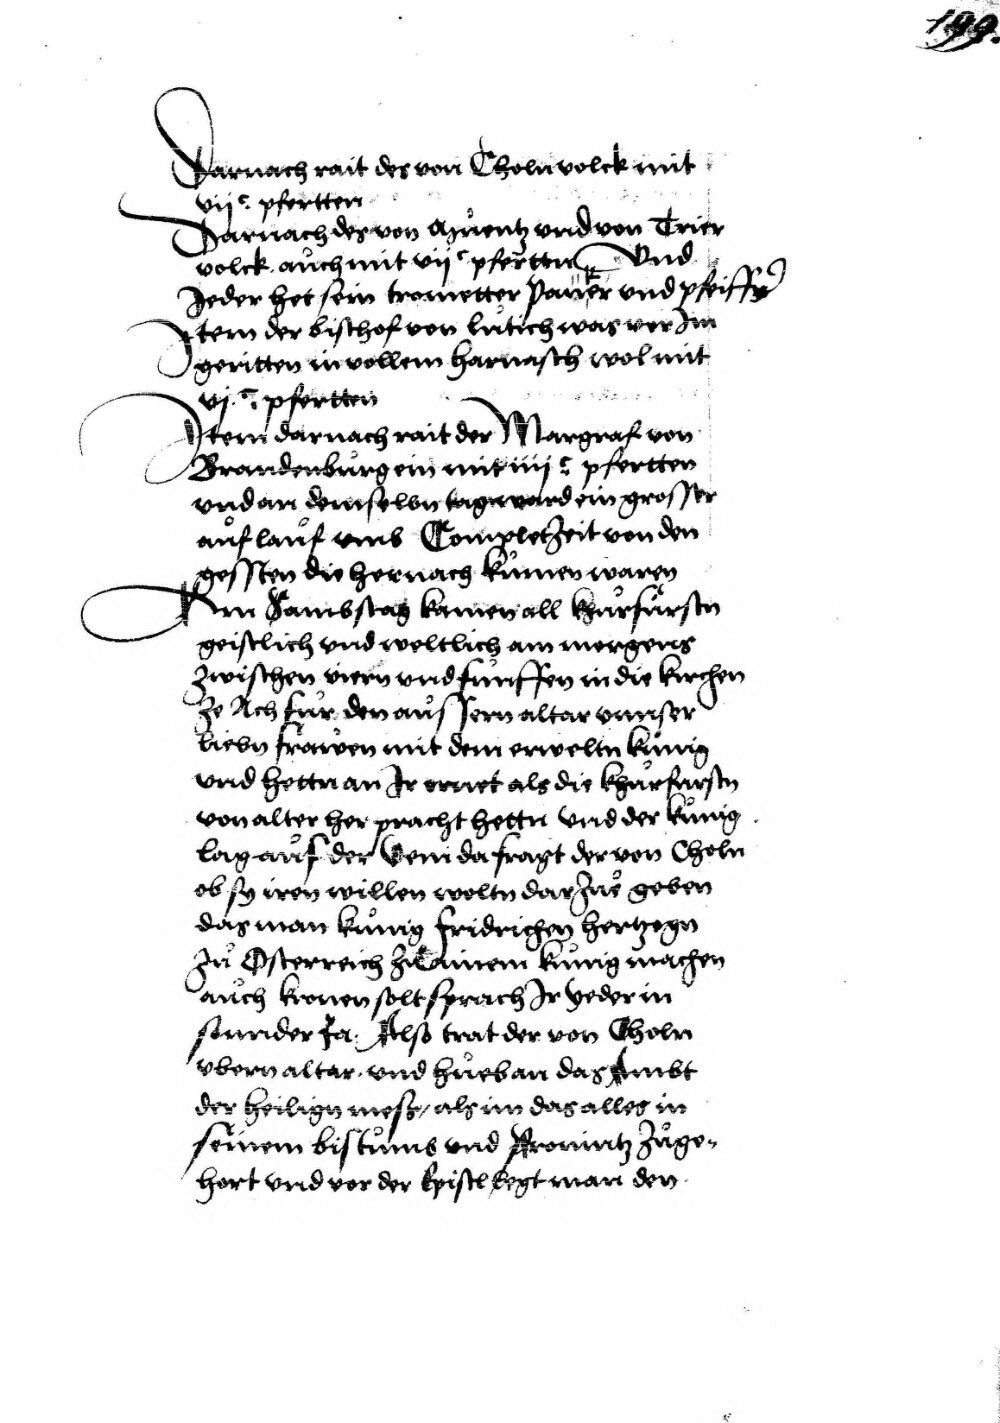 199.
Darnach rait des von Choln volck mit
vii c. pfertten
Darnach des von Mentz vnd von Trier
volck auch mit vii c pfertten Vnd
Jeder het sein trometter Pauker vnd pfeiffer
Item der bischof von lutich was vor Im
geritten in vollem harnasch wol mit
vj. c. pfertten
Item darnach rait der Margraf von
Brandenburg ein mit iiij c. pfertten
vnd an demselbn tag ward ein grosser
auflauf vmb Completzeit von den
gessten die hernach kumen waren
Am Sambstag kamen all khurfürstn
geistlich vnd weltlich am morgens
zwischen viern vnd funffen in die kirchen
ze Ach fur den aussern altar vnnser
liebn frawen mit dem erweltn kunig
vnd hettn an Ir ornet als die khurfurstn
von alter her pracht hettn vnd der kunig
lag auf der Veni da fragt der von Choln
ob sy iren willen woltn darzue geben
das man kunig fridrichen hertzogn
zu Osterreich zu ainem kunig machen
auch kronen solt sprach Ir yeder in
sunnder Ja. Also trat der von Choln
vbern altar vnd hueb an das Ambt
der heilign mess/ als im das alles in
seinem bistumb vnd Prouintz zuge-
hort vnd vor der Epistl legt man den